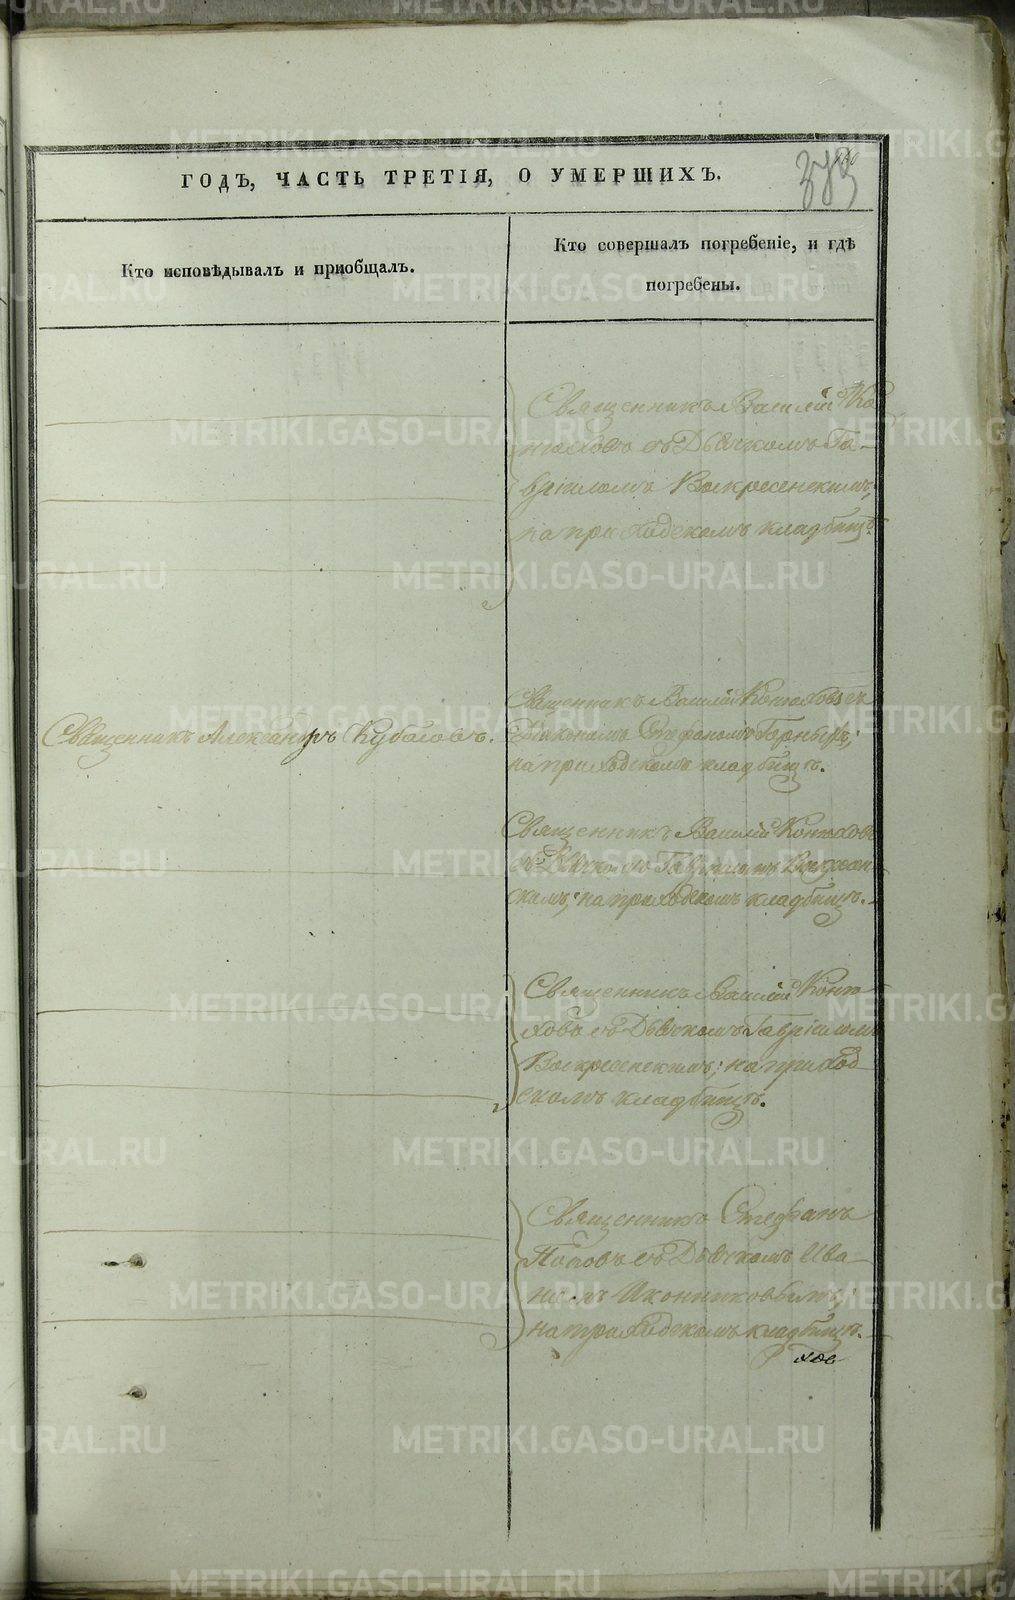 ГОДЪ, ЧАСТЬ ТРЕТІЯ, О УМЕРШИХЪ.
Кто исповѣдывалъ и пріобщалъ.
Кто совершалъ погребеніе, и гдѣ
погребены.
Священникъ Василій Ко
нюховъ съ Дьячкомъ Га-
вріиломъ Воскресенскимъ;
на приходскомъ кладбищѣ.
Священникъ Александръ Кубасовъ.
Священникъ Василій Конюховъ съ
Діакономъ Стефаномъ Горныхъ;
на приходскомъ кладбищѣ.
Священникъ Василій Конюховъ
съ Дьячкомъ Гавріиломъ Воскресен-
скимъ; на приходскомъ кладбищѣ.
Священникъ Василій Коню-
ховъ съ Дьячкомъ Гавріиломъ
Воскресенскимъ; на приход
скомъ кладбищѣ.
Священникъ Стефанъ
Поповъ съ Дьячкомъ Ива-
номъ Иконниковымъ;
на приходскомъ кладбищѣ.
METRIKI.GASO-URAL.RU